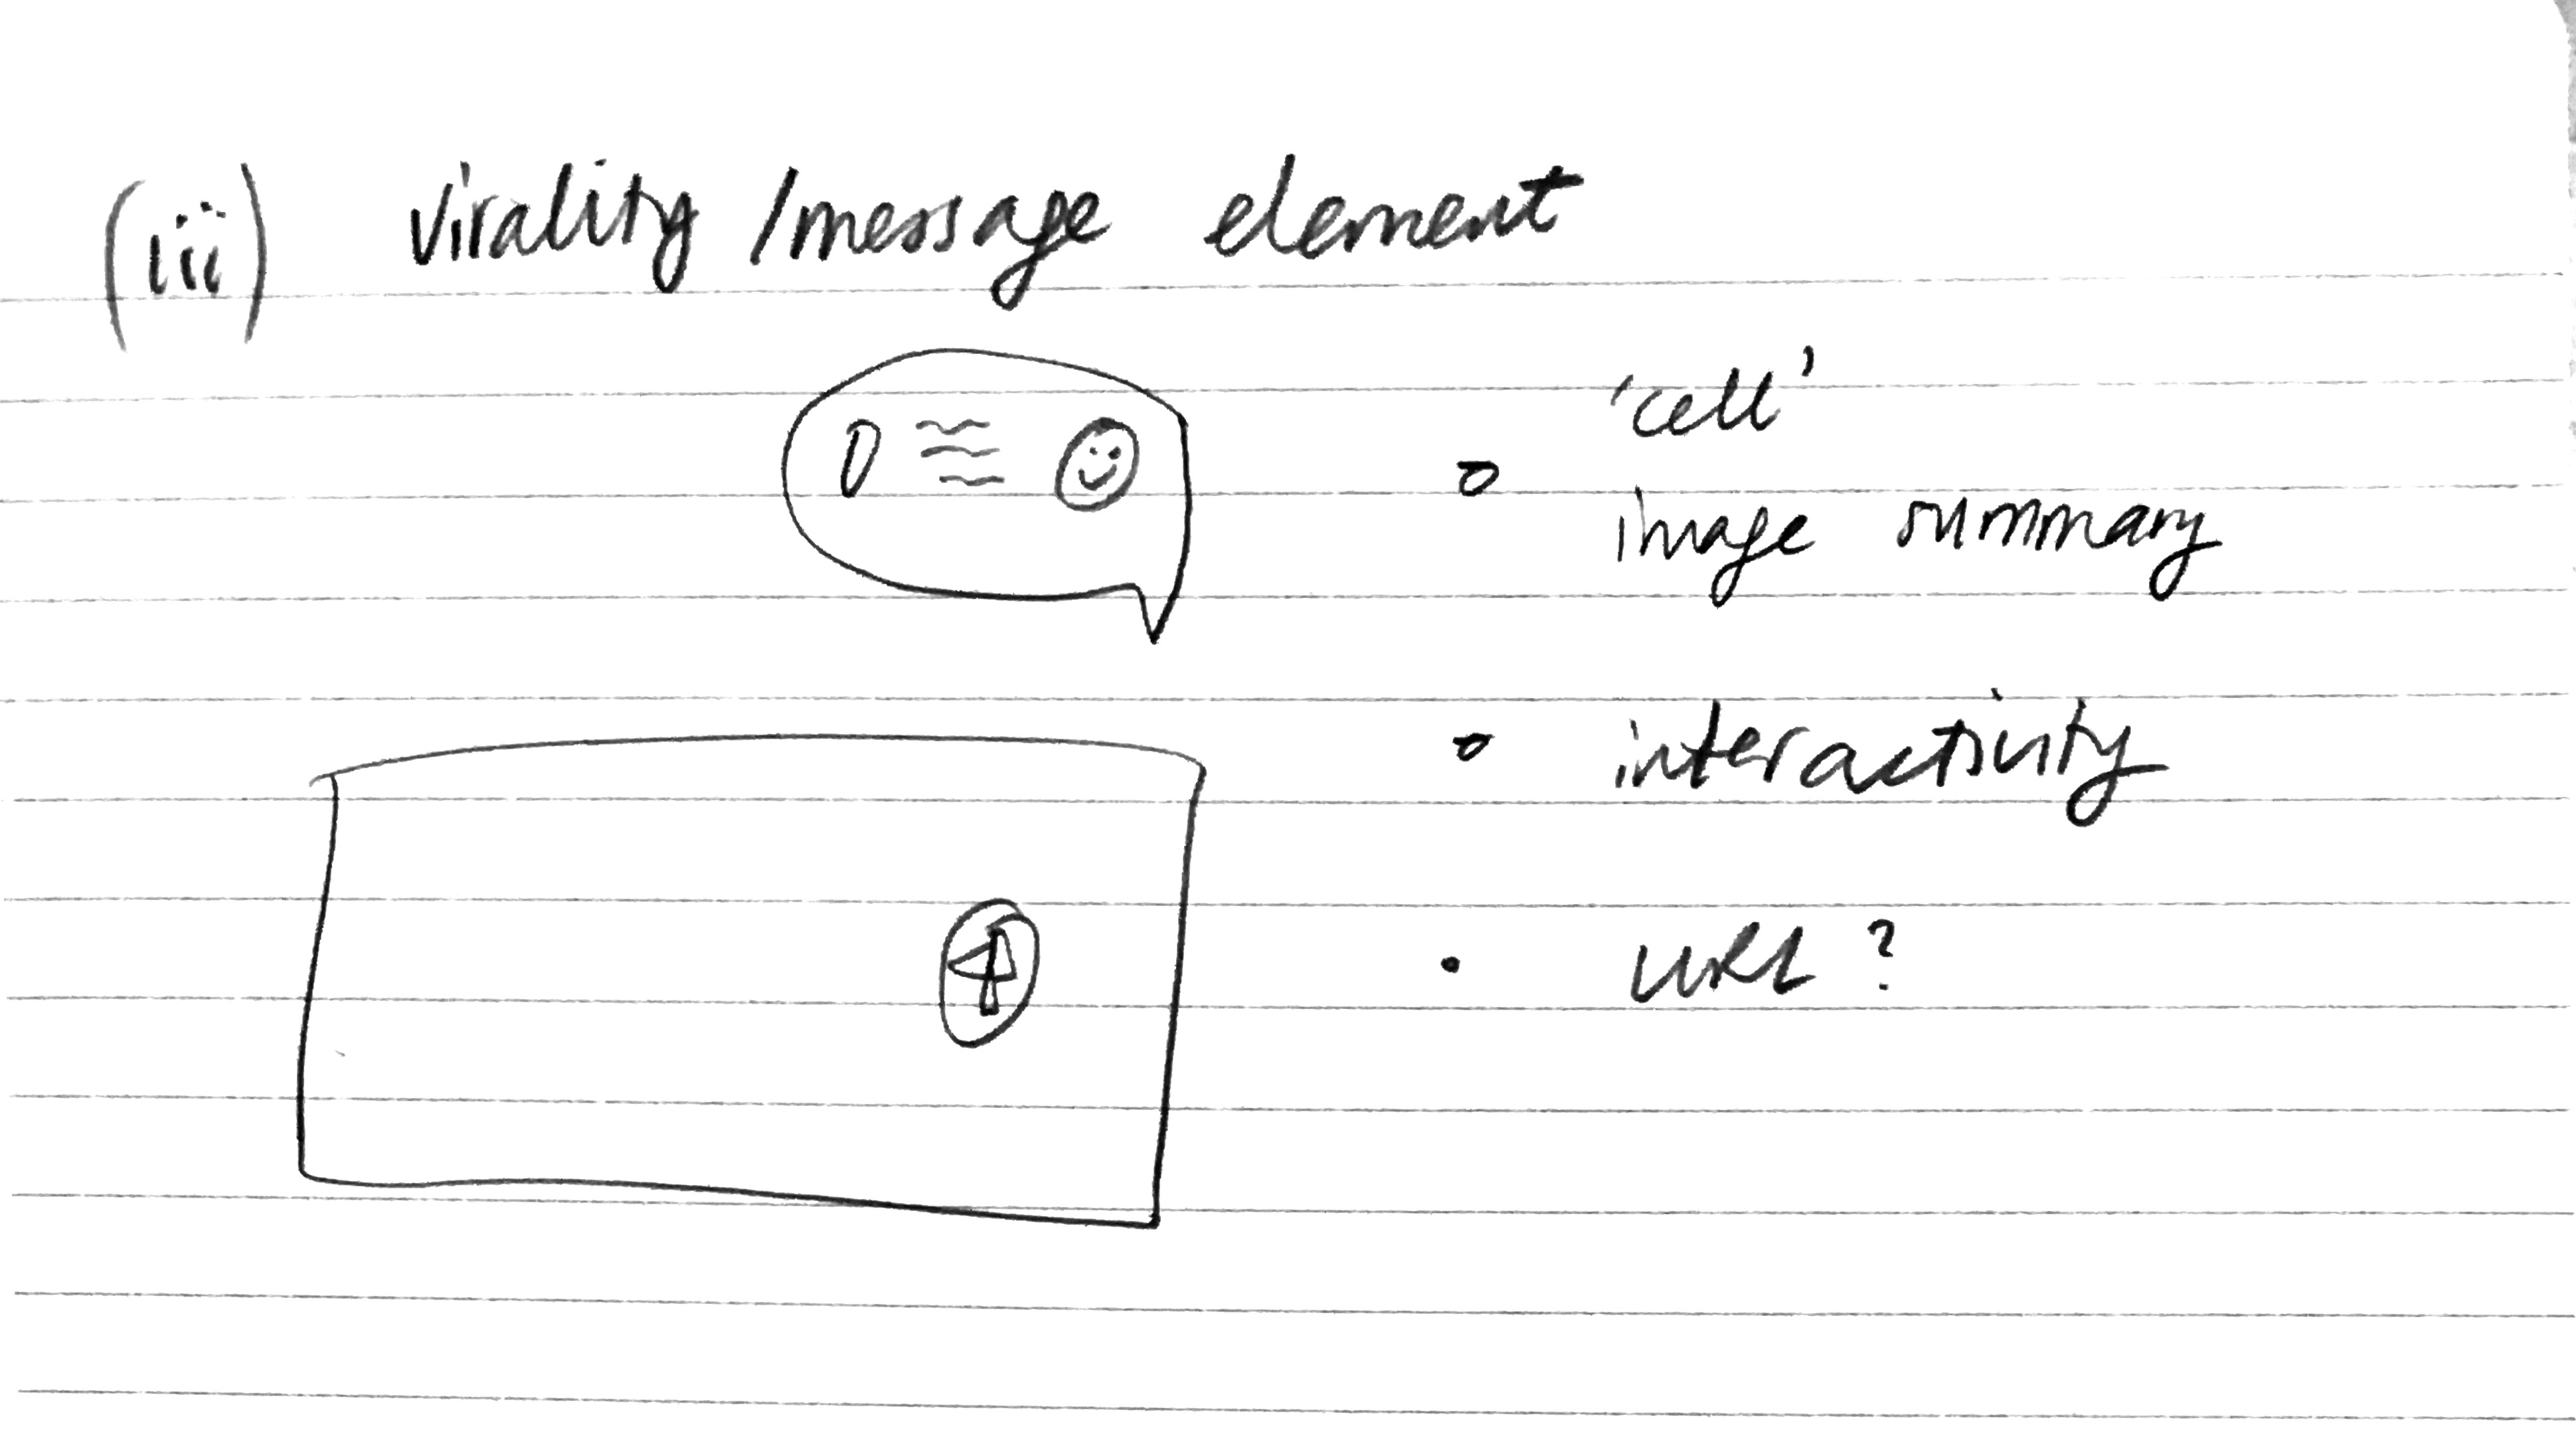 (iii) virality / message element
'cell'
image summary
interactivity
URL ?